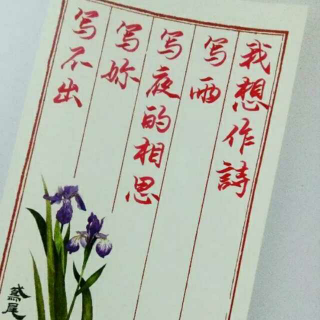 我想作詩
写雨
写夜的相思
写妳
写不出
鸢尾